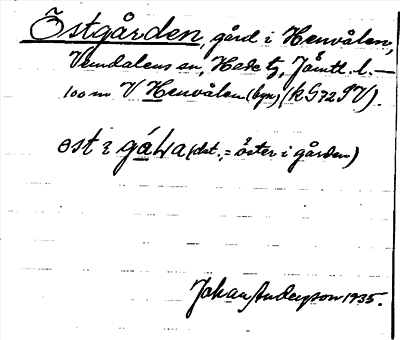 Östgården, gård i Henvålen,
Vemdalens sn, Hede tg, Jämtl. l. —
100 m V Henvålen (byn) (kG72SV).
øst i gáɫa (dat., = öster i gården)
Johan Anderson 1935.